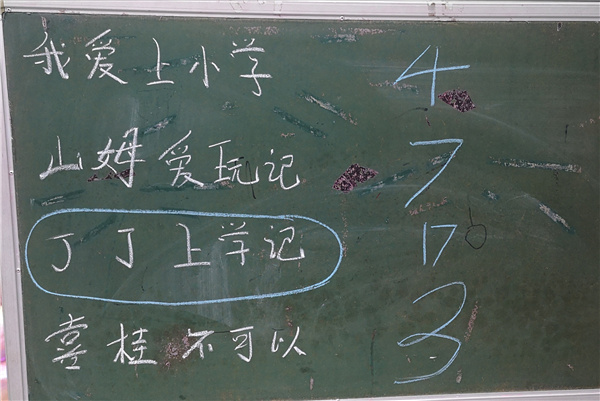 我爱上小学 4
山姆爱玩记 7
丁丁上学记 17
喜桂不可以 3